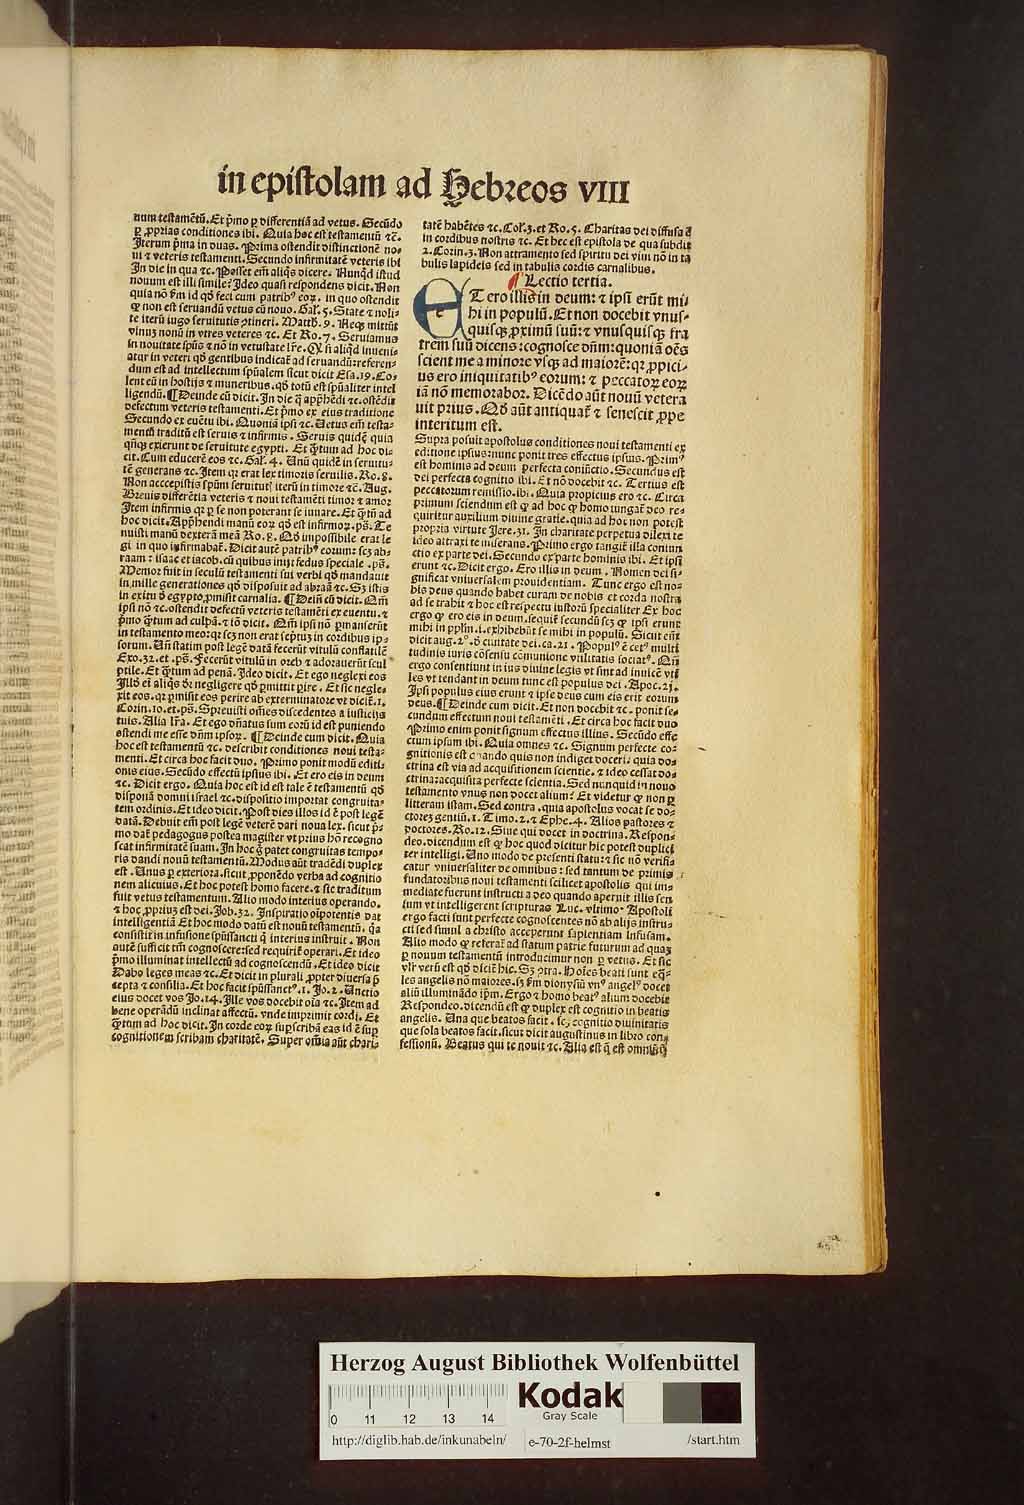 in epistolam ad Hebreos VIII
num testamētū. Et p̄mo ꝑ differentiā ad vetus. Secūdo
ꝑ ꝓprias conditiones ibi. Quia hoc est testamentū ⁊c̄.
Iterum p̄ma in duas. Prima ostendit distinctionē no⸗
ui ⁊ veteris testamenti. Secundo infirmitatē veteris ibi
In die in qua ⁊c. Posset em̄ aliq̄s dicere. Nunq̄d istud
nouum est illi simile? Ideo quasi respondens dicit. Non
quia nō ẜm id qd̄ feci cum patribꝰ eoꝝ. in quo ostendit
ꝙ non est seruandū vetus cū nouo. Gal. 5. State ⁊ noli⸗
te iterū iugo seruitutis ꝯtineri. Matth. 9. Neqꝫ mittūt
vinuꝫ nouū in vtres veteres ⁊c. Et Ro. 7. Seruiamus
in nouitate spūs ⁊ nō in vetustate lr̄e. Qd̓ si aliqd̄ inueni⸗
atur in veteri qd̄ gentibus indicat̄ ad seruandū: referen⸗
dum est ad intellectum spūalem sicut dicit Esa. 19. Co⸗
lent eū in hostijs ⁊ muneribus. qd̄ totū est spūaliter intel
ligendū. ¶ Deinde cū dicit. In die q̄ app̄hēdi ⁊c. ostēdit
defectum veteris testamenti. Et p̄mo ex eius traditione
Secundo ex euētu ibi. Quoniā ipsi ⁊c. Uetus em̄ testa⸗
mentū traditū est seruis ⁊ infirmis. Seruis quidē quia
qn̄qꝫ exierunt de seruitute egypti. Et q̄ntum ad hoc di⸗
cit. Cum educerē eos ⁊c. Gal. 4. Unū quidē in seruitu⸗
tē generans ⁊c. Item qꝛ erat lex timoris seruilis. Ro. 8.
Non accepistis spūm seruitutꝭ iterū in timore ⁊c̄. Aug.
Breuis differētia veteris ⁊ noui testamēti timor ⁊ amor
Item infirmis qꝛ ꝑ se non poterant se iuuare. Et q̄tū ad
hoc dicit. App̄hendi manū eoꝝ qd̄ est infirmoꝝ. ps̄. Te
nuisti manū dexterā meā Ro. 8. Qd̄ impossibile erat le
gi in quo infirmabat̄. Dicit autē patribꝰ eorum: scꝫ ab⸗
raam: isaac et iacob. cū quibus inijt fedus speciale. ps̄.
Memor fuit in seculū testamenti sui verbi qd̄ mandauit
in mille generationes qd̄ disposuit ad abraā ⁊c. Sꝫ istis
in exitu d̓ egypto ꝓmisit carnalia. ¶ Dein̄ cū dicit. Qm̄
ipsi nō ⁊c. ostendit defectū veteris testamēti ex euentu. ⁊
p̄mo q̄tum ad culpā. ⁊ iō dicit. Qm̄ ipsi nō ꝑmanserūt
in testamento meo: qꝛ scꝫ non erat sep̄tuꝫ in cordibus ip⸗
sorum. Un̄ statim post legē datā fecerūt vitulū conflatilē
Exo. 32. et. ps̄. Fecerūt vitulū in oreb ⁊ adorauerūt scul
ptile. Et q̄tum ad penā. Ideo dicit. Et ego neglexi eos
Illd̓ em̄ aliqs̄ dr̄ negligere qd̄ ꝑmittit ꝑire. Et sic negle⸗
xit eos. qꝛ ꝑmisit eos perire ab exterminatore vt dicit̄. 1.
Corin. 10. et. ps̄. Spreuisti om̄es discedentes a iusticijs
tuis. Alia lr̄a. Et ego dn̄atus sum eorū id est puniendo
ostendi me esse dn̄m ipsoꝝ. ¶ Deinde cum dicit. Quia
hoc est testamentū ⁊c. describit conditiones noui testa⸗
menti. Et circa hoc facit duo. Primo ponit modū editi⸗
onis eius. Secūdo effectū ipsius ibi. Et ero eis in deum
⁊c. Dicit ergo. Quia hoc est id est tale ē testamentū qd̄
disponā domui israel ⁊c. dispositio importat congruita⸗
tem ordinis. Et ideo dicit. Post dies illos id ē post legē
datā. Debuit em̄ post legē veterē dari noua lex. sicut p̄⸗
mo dat̄ pedagogus postea magister vt prius hō recogno
scat infirmitatē suam. In hoc g̊ patet congruitas tempo⸗
ris dandi nouū testamentū. Modus aūt tradēdi duplex
est. Unus ꝑ exteriora. sicut ꝓponēdo verba ad cognitio
nem alicuius. Et hoc potest homo facere. ⁊ sic traditum
fuit vetus testamentum. Alio modo interius operando.
⁊ hoc ꝓpriuꝫ est dei. Job. 32. Inspiratio oīpotentis dat
intelligentiā Et hoc modo datū est nouū testamentū. qꝛ
consistit in infusione spūssancti q̄ interius instruit. Non
autē sufficit tm̄ cognoscere: sed requirit̄ operari. Et ideo
p̄mo illuminat intellectū ad cognoscendū. Et ideo dicit
Dabo leges meas ⁊c. Et dicit in plurali ꝓpter diuersa p̄
cepta ⁊ consilia. Et hoc facit spūssanctꝰ. 1. Jo. 2. Unctio
eius docet vos Jo. 14. Ille vos docebit oīa ⁊c. Item ad
bene operādū inclinat affectū. vnde imprimit cordi. Et
q̄tum ad hoc dicit. In corde eoꝝ suꝑscribā eas id ē suꝑ
cognitionem scribam charitatē. Super oīa aūt chari⸗
tatē habētes ⁊c. Col. 3. et Ro. 5. Charitas dei diffusa ē
in cordibus nostris ⁊c. Et hec est epistola de qua subdit
2. Corin. 3. Non attramento sed spiritu dei viui nō in ta
bulis lapideis sed in tabulis cordis carnalibus.
¶ Lectio tertia.
ET ero illis in deum: ⁊ ipsi erūt mi⸗
hi in populū. Et non docebit vnus⸗
quisqꝫ ꝓximū suū: ⁊ vnusquisqꝫ fra
trem suū dicens: cognosce dn̄m: quoniā oēs
scient me a minore vsqꝫ ad maiorē: qꝛ ꝓpici⸗
us ero iniquitatibꝰ eorum: ⁊ peccatoꝝ eoꝝ
iā nō memorabor. Dicēdo aūt nouū vetera
uit prius. Qd̄ aūt antiquat̄ ⁊ senescit ꝓpe
interitum est.
Supra posuit apostolus conditiones noui testamenti ex
editione ipsius: nunc ponit tres effectus ipsius. Primꝰ
est hominis ad deum perfecta coniūctio. Secundus est
dei perfecta cognitio ibi. Et nō docebit ⁊c. Tertius est
peccatorum remissio. ibi. Quia propicius ero ⁊c. Circa
primum sciendum est ꝙ ad hoc ꝙ homo iungat̄ deo re⸗
quiritur auxilium diuine gratie. quia ad hoc non potest
propria virtute Jere. 31. In charitate perpetua dilexi te
ideo attraxi te miserans. Primo ergo tangit̄ illa coniun
ctio ex parte dei. Secundo ex parte hominis ibi. Et ipsi
erunt ⁊c. Dicit ergo. Ero illis in deum. Nomen dei si⸗
gnificat vniuersalem prouidentiam. Tunc ergo est no⸗
bis deus quando habet curam de nobis et corda nostra
ad se trahit ⁊ hoc est respectu iustorū specialiter Ex hoc
ergo ꝙ ero eis in deum. sequit̄ secundū scꝫ ꝙ ipsi erunt
mihi in pplm̄. i. exhibebūt se mihi in populū. Sicut em̄
dicit aug. 2°. d̓ ciuitate dei. ca. 21. Populꝰ ē cetꝰ multi
tudinis iuris cōsensu cōmunione vtilitatis sociatꝰ. Qn̄
ergo consentiunt in ius diuine legis vt sint ad inuicē vti
les vt tendant in deum tunc est populus dei. Apoc. 21.
Ipsi populus eius erunt ⁊ ipse deus cum eis erit eorum
deus. ¶ Deinde cum dicit. Et non docebit ⁊c. ponit se⸗
cundum effectum noui testamēti. Et circa hoc facit duo
Primo enim ponit signum effectus illius. Secūdo effe
ctum ipsum ibi. Quia omnes ⁊c. Signum perfecte co⸗
gnitionis est quando quis non indiget doceri. quia do⸗
ctrina est via ad acquisitionem scientie. ⁊ ideo cessat do⸗
ctrina: acquisita perfecte scientia. Sed nunquid in nouo
testamento vnus non docet alium? Et videtur ꝙ non ꝑ
litteram istam. Sed contra. quia apostolus vocat se do⸗
ctorē gentiū. 1. Timo. 2. ⁊ Ephe. 4. Alios pastores ⁊
doctores. Ro. 12. Siue qui docet in doctrina. Respon⸗
deo. dicendum est ꝙ hoc quod dicitur hic potest duplici
ter intelligi. Uno modo de presenti statu: ⁊ sic nō verifi⸗
catur vniuersaliter de omnibus: sed tantum de primis
fundatoribus noui testamenti scilicet apostolis qui im⸗
mediate fuerunt instructi a deo quando aperuit illis sen
sum vt intelligerent scripturas Luc. vltimo. Apostoli
ergo facti sunt perfecte cognoscentes nō ab alijs instru⸗
cti sed simul a christo acceperunt sapientiam infusam.
Alio modo ꝙ referat̄ ad statum patrie futurum ad quaꝫ
ꝑ nouum testamentū introducimur non ꝑ vetus. Et sic
vl̄r verū est qd̄ dicit̄ hic. Sꝫ ꝯtra. Hoīes beati sunt eq̄⸗
les angelis nō maiores. sꝫ ẜm dionysiū vnꝰ angelꝰ docet
aliū illuminādo ip̄m. Ergo ⁊ homo beatꝰ alium docebit
Respondeo. dicendū est ꝙ duplex est cognitio in beatis
angelis. Una que beatos facit. scꝫ cognitio diuinitatis
que sola beatos facit. sicut dicit augustinus in libro con⸗
fessionū. Beatus qui te nouit ⁊c. Alia est q̄ est omniū q̄
Herzog August Bibliothek Wolfenbüttel
0 11 12 13 14
Kodak
Gray Scale
http://diglib.hab.de/inkunabeln/ e-70-2f-helmst /start.htm